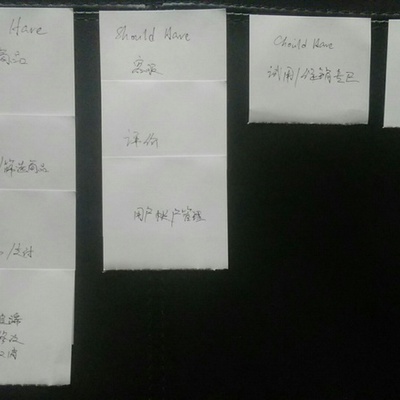 Have
商品
/筛选商品
/支付
Should Have
客服
评价
用户账户管理
Chould Have
试用/促销专区